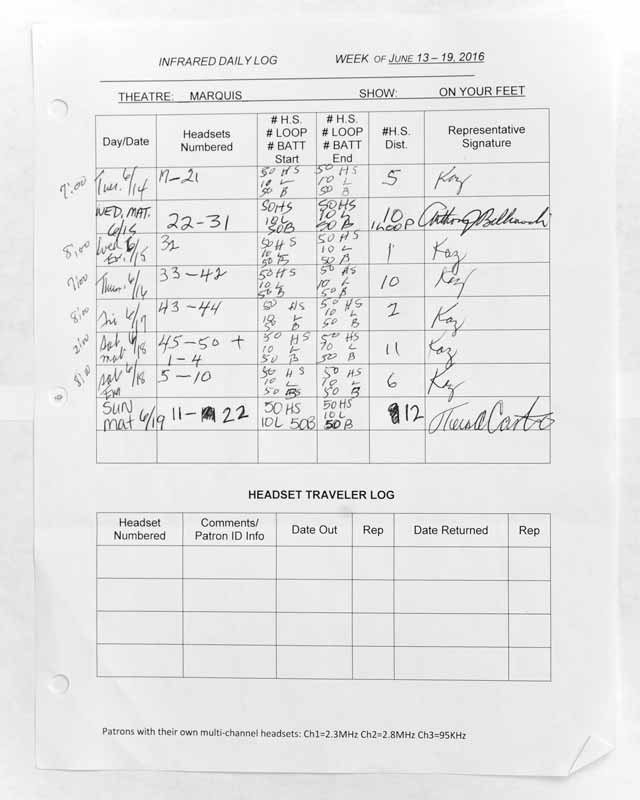 INFRARED DAILY LOG WEEK OF JUNE 13 – 19, 2016
THEATRE: MARQUIS SHOW: ON YOUR FEET
Day/Date Headsets Numbered # H.S. # LOOP # BATT Start # H.S. # LOOP # BATT End #H.S. Dist. Representative Signature
7:00 Tues. 6/14 17-21 50 HS 10 L 50 B 50 HS 10 L 50 B 5 Kaz
WED. MAT. 6/15 22-31 50HS 10L 50B 50HS 10 L 50 B 10 1 LOOP Anthony
8:00 Wed 6/15 Ev. 32 50 HS 10 L 50 B 50 HS 10 L 50 B 1 Kaz
7:00 Thurs. 6/16 33-42 50 HS 10 L 50 B 50 HS 10 L 50 B 10 Kaz
8:00 Fri 6/17 43-44 50 HS 10 L 50 B 50 HS 10 L 50 B 2 Kaz
2:00 Sat. 6/18 mat. 45-50 + 1-4 50 HS 10 L 50 B 50 HS 10 L 50 B 11 Kaz
8:00 Sat 6/18 5-10 50 HS 10 L 50 B 50 HS 10 L 50 B 6 Kaz
SUN mat 6/19 11- 22 50 HS 10L 50B 50HS 10L 50 B 12
HEADSET TRAVELER LOG
Headset Numbered Comments/ Patron ID Info Date Out Rep Date Returned Rep
Patrons with their own multi-channel headsets: Ch1=2.3MHz Ch2=2.8MHz Ch3=95KHz